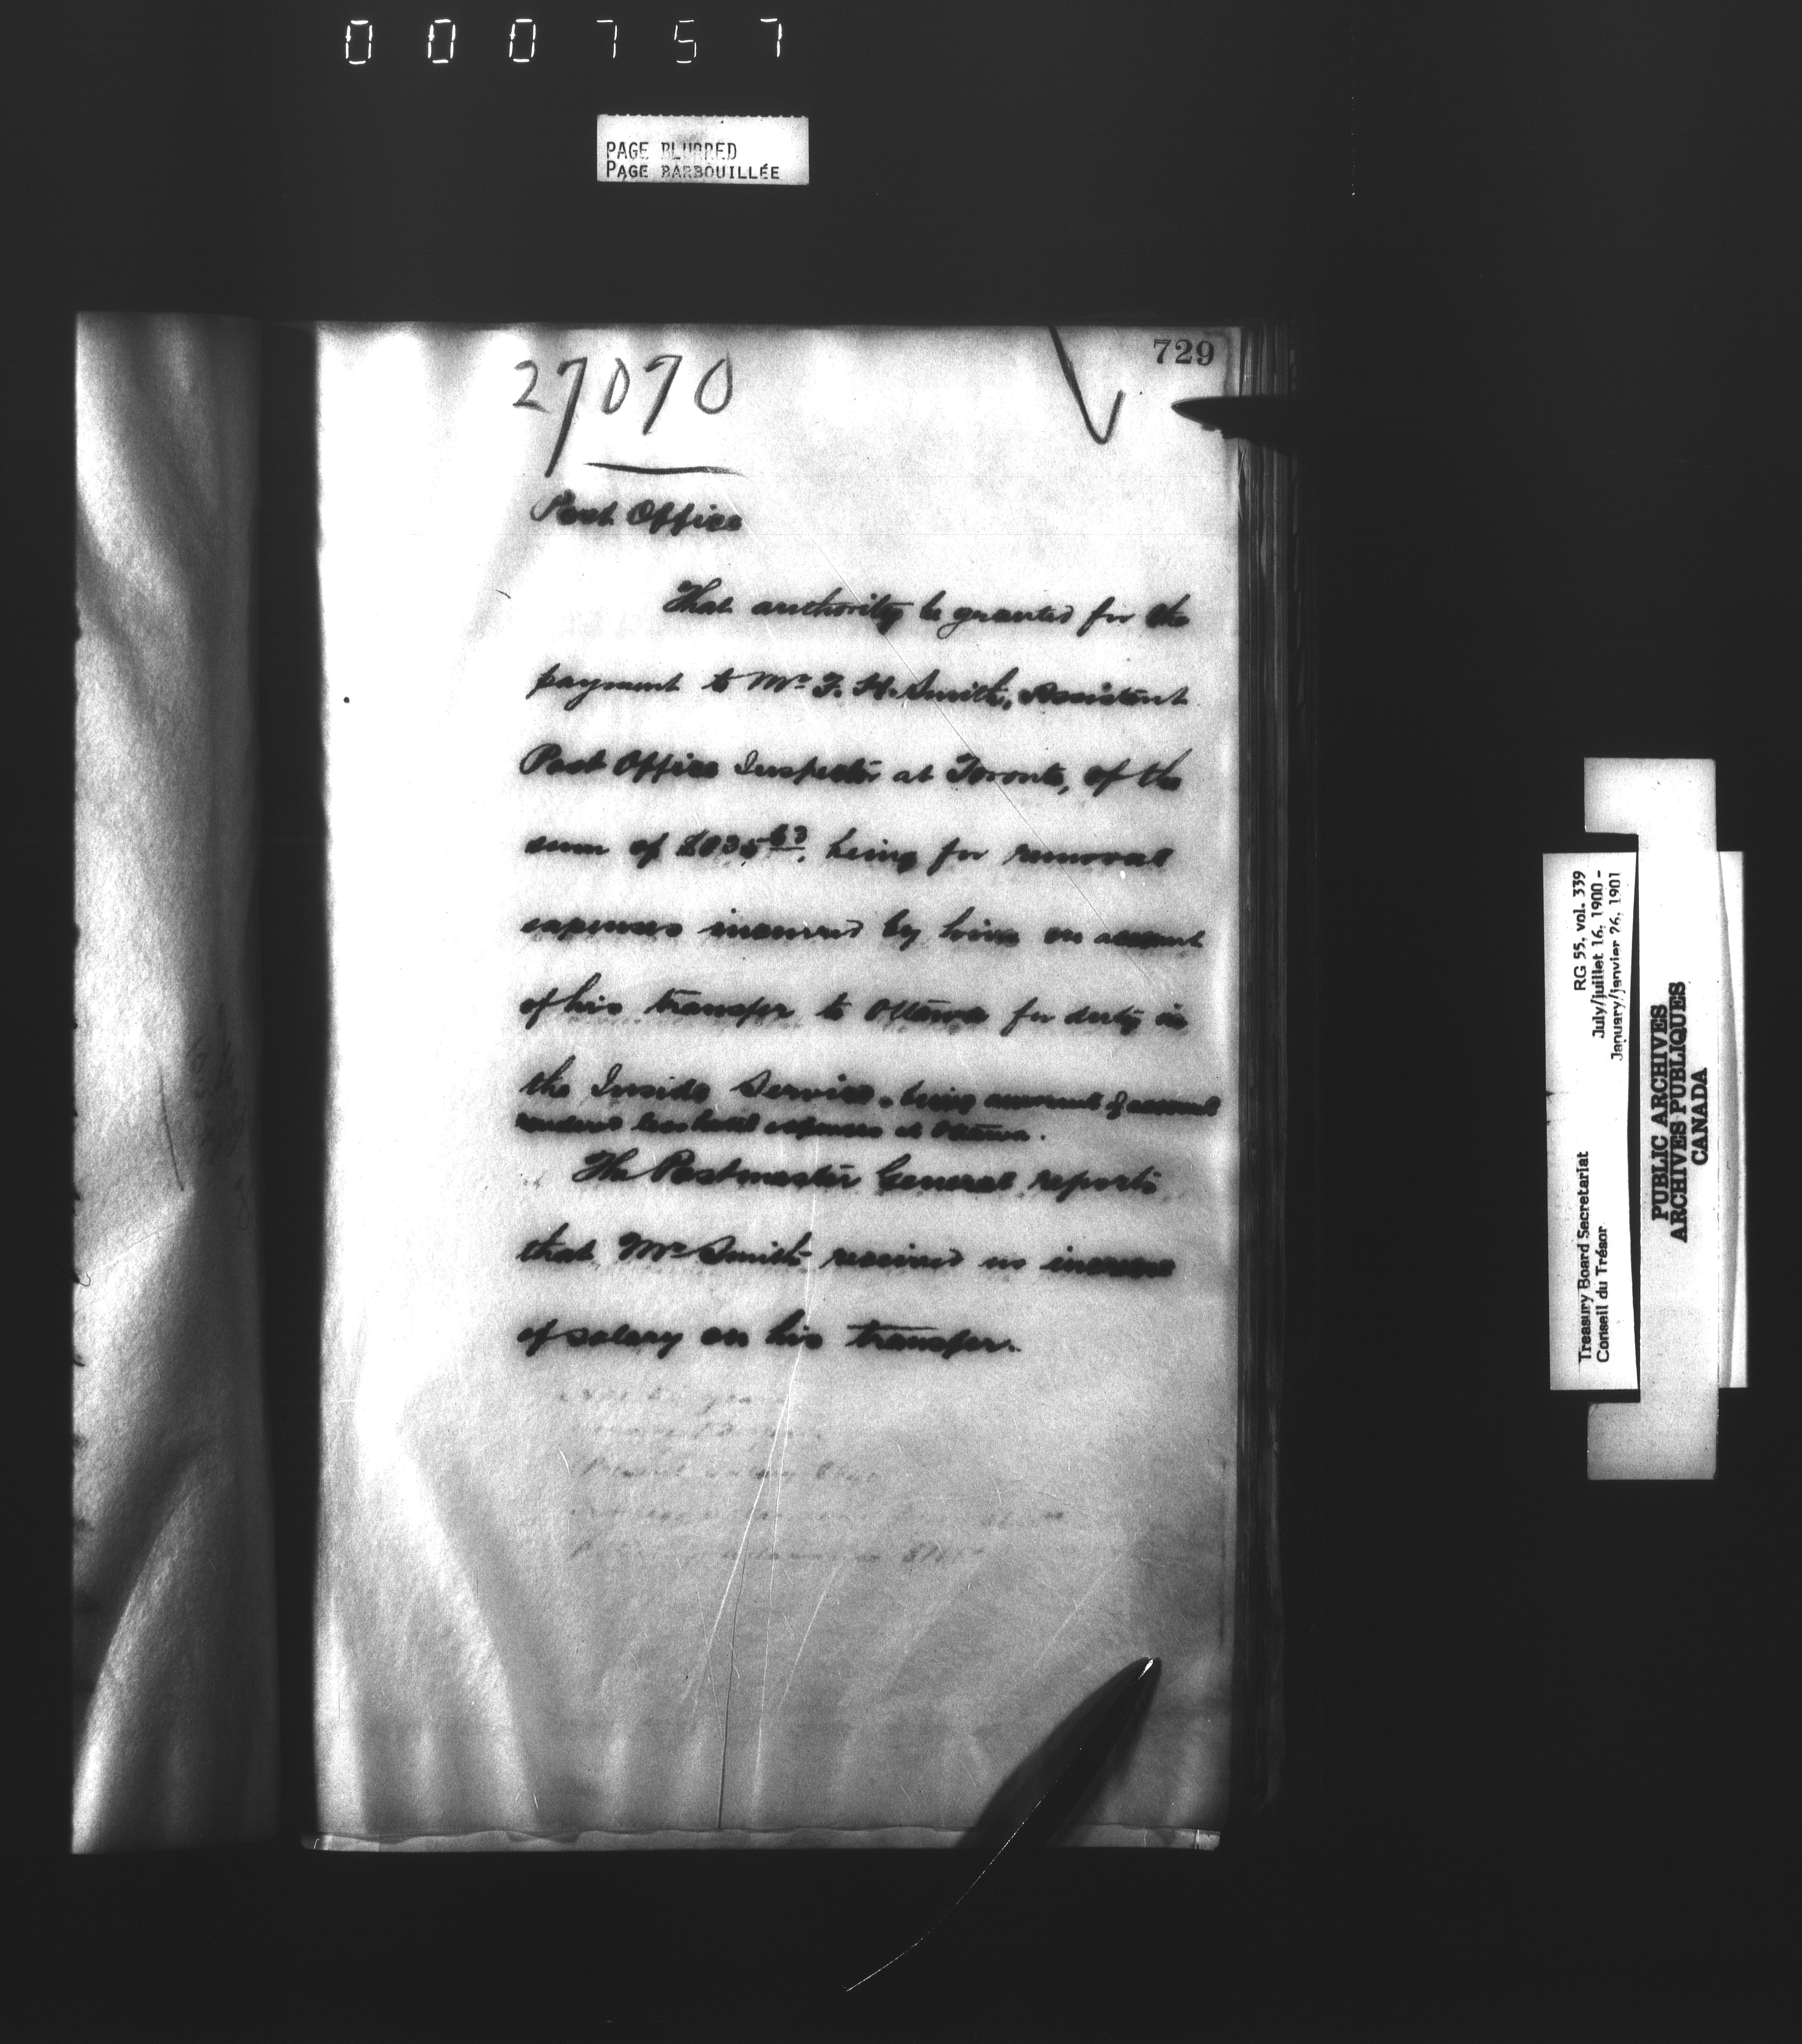 000757
PAGE BLURRED
PAGE BARBOUILLÉE
729
27070
Post Office
That authority be granted for the
payment to Mr. F. H. Smith, Assistant
Post Office Inspector at Toronto, of the
sum of being for removal
expenses incurred by him on account
of his transfer to Ottawa for duty in
the Inside Service. being amount of account
rendered less hotel expenses at Ottawa.
The Postmaster General reports
that Mr Smith received no increase
of salary on his transfer.
RG 55, vol. 339
July/juillet 16, 1900 -
January/janvier 26, 1901
Treasury Board Secretariat
Conseil du Trésor
PUBLIC ARCHIVES
ARCHIVES PUBLIQUES
CANADA